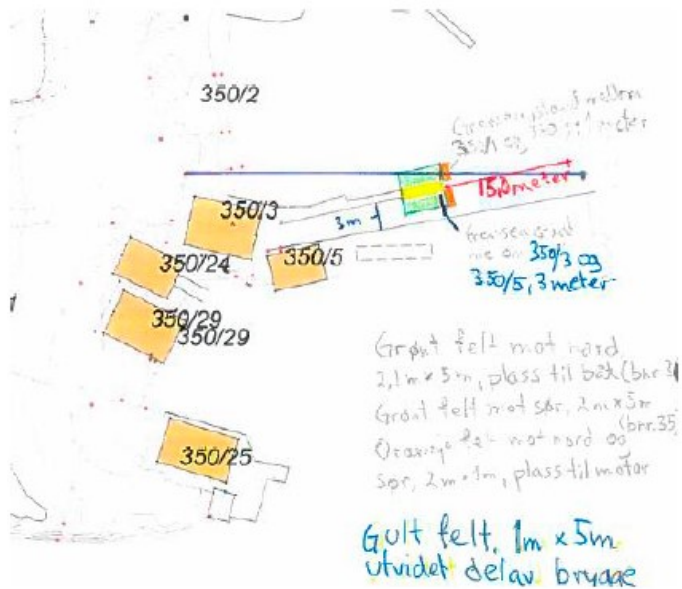 350/2
Grenseavstand mellom
350/1 og
meter
350/3
15,0 meter
3m
350/24
350/5
mellom 350/3 og
350/5, 3 meter
350/29
350/29
Grønt felt mot nord
2,1m x 5m, plass til båt (bnr.
Grønt felt mot sør, 2m x 5m
(bnr. 35
Oransje felt mot nord og
sør, 2m x 1m, plass til motor
350/25
Gult felt, 1m x 5m
utvidet del av brygge